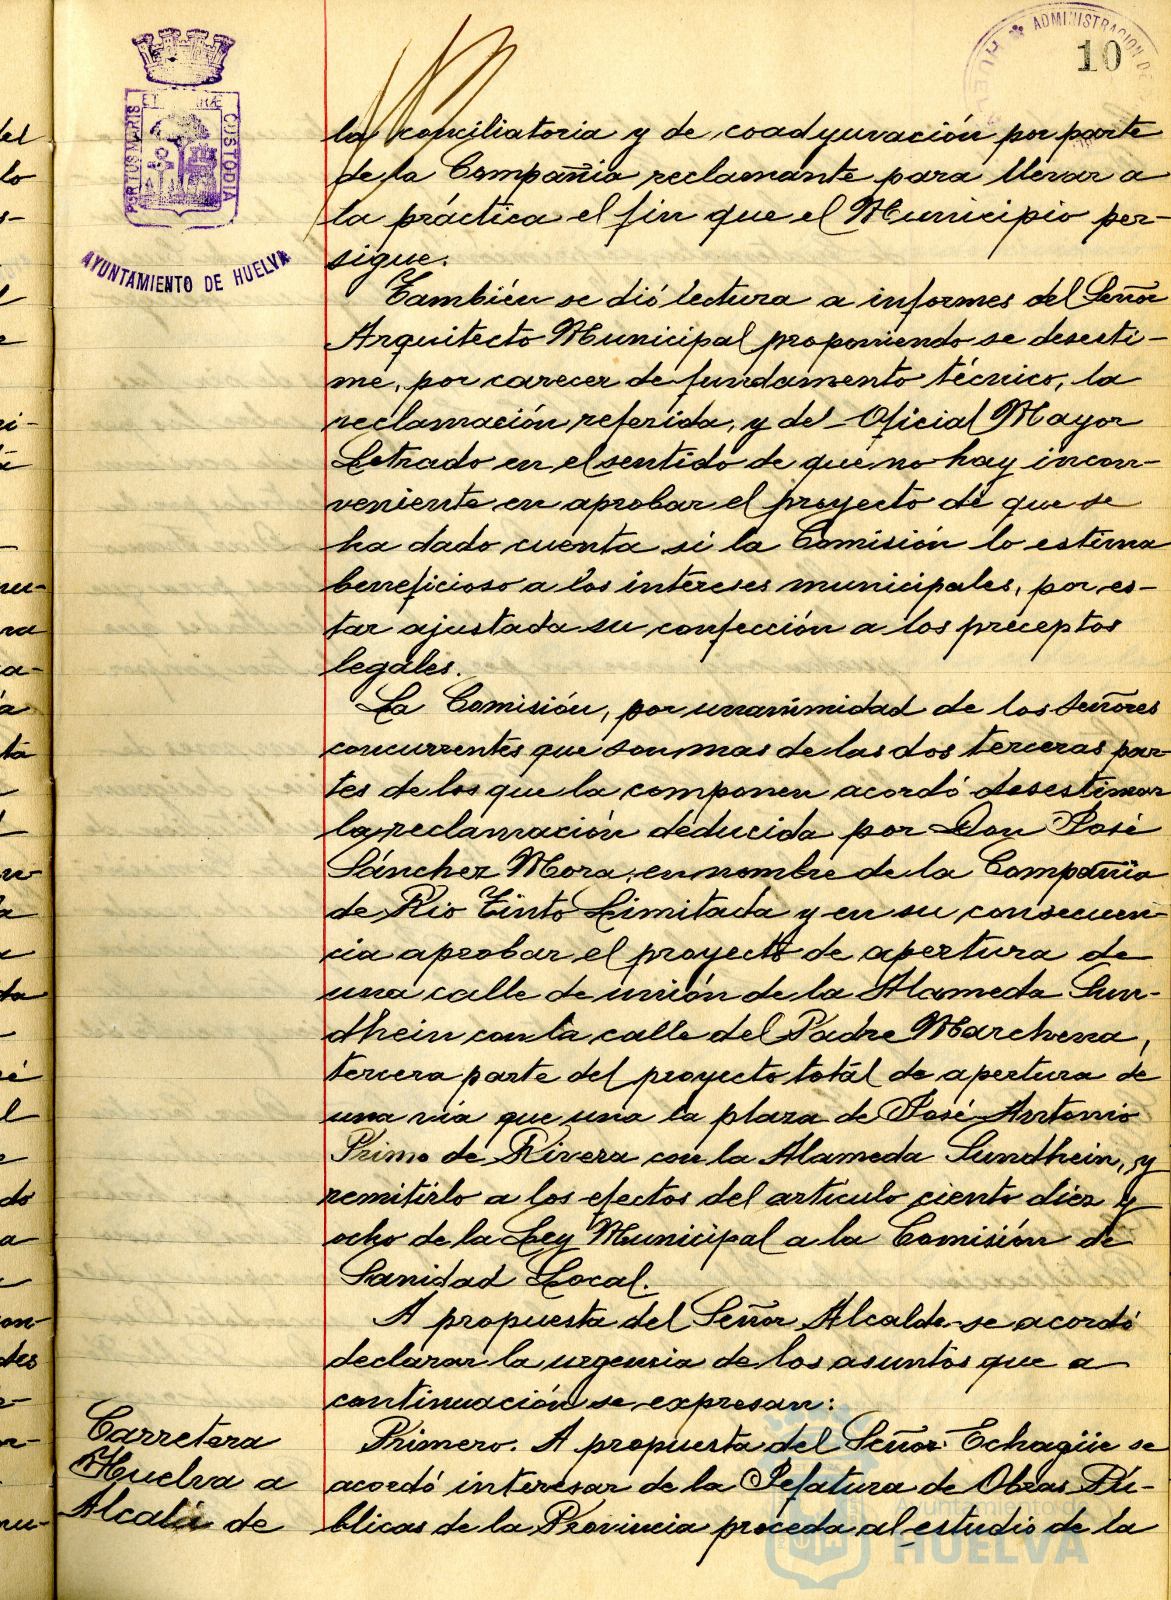 ADMINISTRACION DE
HUELVA
10
PORTUS MARIS ET TERRÆ CUSTODIA
AYUNTAMIENTO DE HUELVA
la conciliatoria y de coadyuvación por parte
de la Compañia reclamante para llevar a
la práctica el fin que el Municipio per-
sigue.
También se dió lectura a informes del Señor
Arquitecto Municipal proponiendo se desesti-
me, por carecer de fundamento técnico, la
reclamación referida, y del Oficial Mayor
Letrado en el sentido de que no hay incon-
veniente en aprobar el proyecto de que se
ha dado cuenta si la Comisión lo estima
beneficioso a los intereses municipales, por es-
tar ajustada su confección a los preceptos
legales.
La Comisión, por unanimidad de los Señores
concurrentes que son mas de las dos terceras par-
tes de los que la componen acordó desestimar
la reclamación deducida por Don José
Sánchez Mora, en nombre de la Compañia
de Rio Tinto Limitada y en su consecuen-
cia aprobar el proyecto de apertura de
una calle de unión de la Alameda Sun-
dhein con la calle del Padre Marchena,
tercera parte del proyecto total de apertura de
una via que una la plaza de José Antonio
Primo de Rivera con la Alameda Sundhein, y
remitirlo a los efectos del artículo ciento diez y
ocho de la Ley Municipal a la Comisión de
Sanidad Local.
A propuesta del Señor Alcalde se acordó
declarar la urgencia de los asuntos que a
continuación se expresan:
Carretera
Huelva a
Alcalá de
Primero. A propuesta del Señor Echagüe se
acordó interesar de la Jefatura de Obras Pú-
blicas de la Provincia proceda al estudio de la
Ayuntamiento de
HUELVA